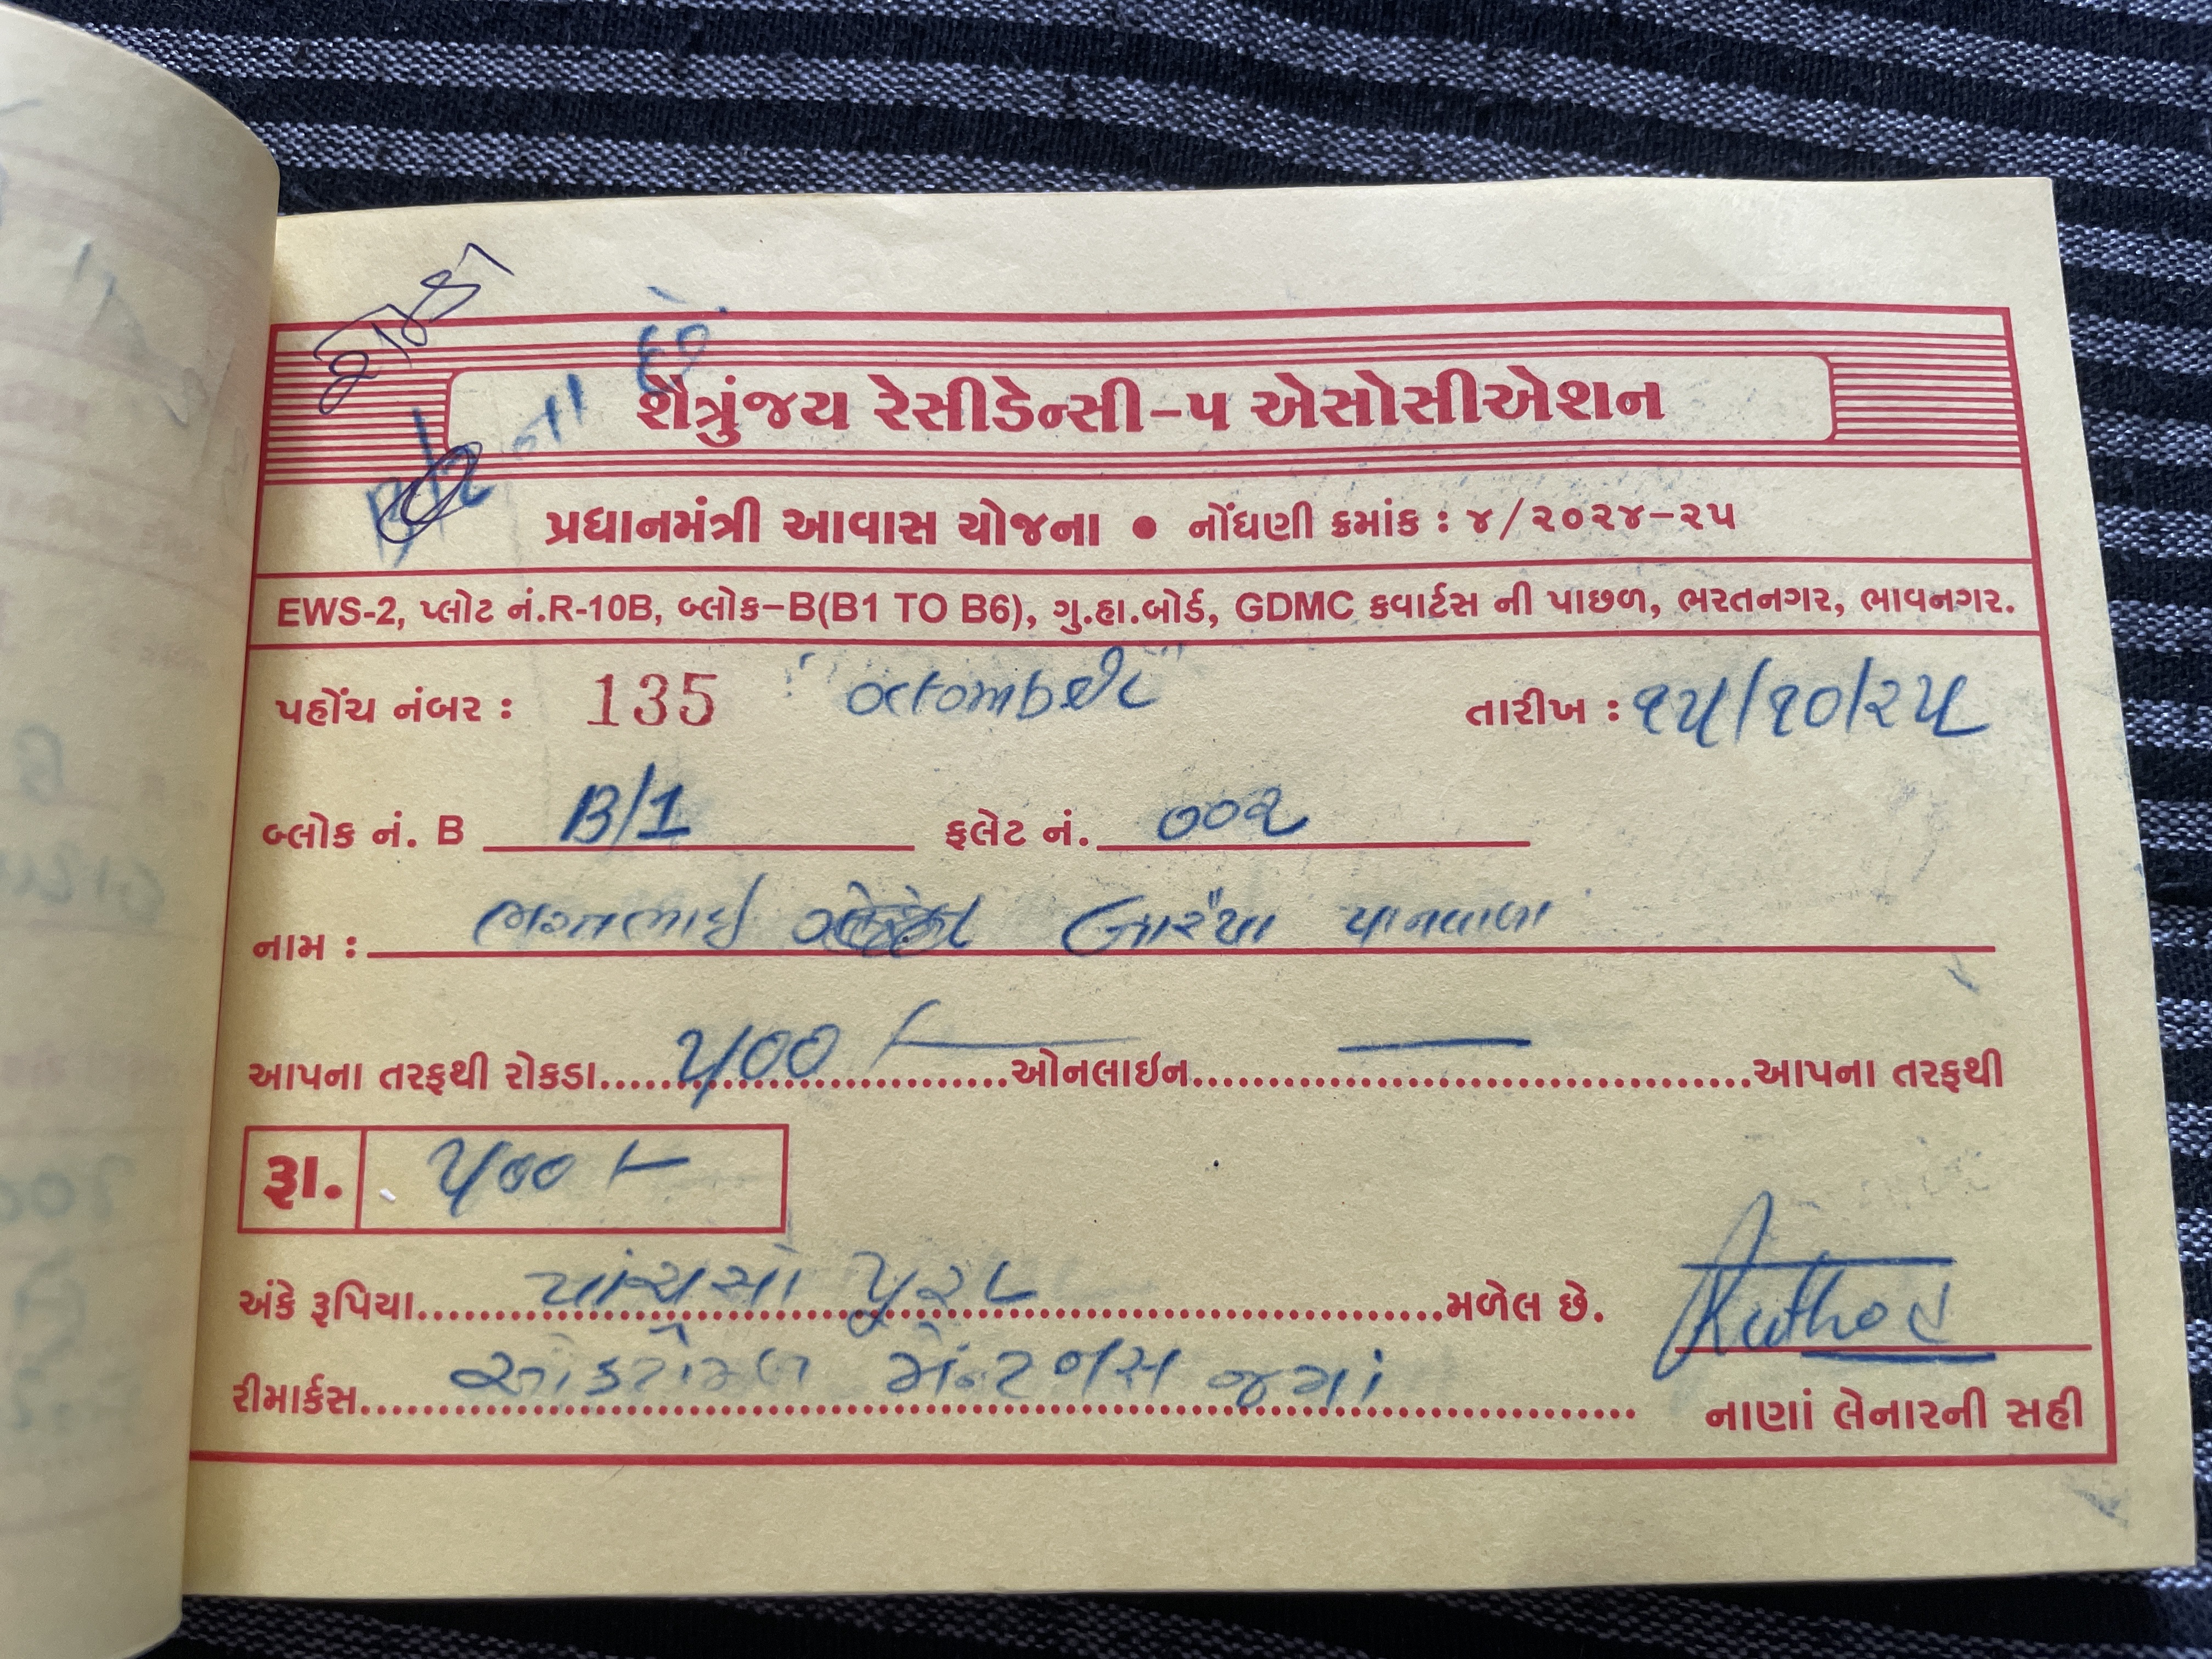 શૈત્રુંજય રેસીડેન્સી-૫ એસોસીએશન
પ્રધાનમંત્રી આવાસ યોજના • નોંધણી ક્રમાંક : ૪/૨૦૨૪-૨૫
EWS-2, પ્લોટ નં.R-10B, બ્લોક-B(B1 TO B6), ગુ.હા.બોર્ડ, GDMC કવાર્ટસ ની પાછળ, ભરતનગર, ભાવનગર.
પહોંચ નંબર : 135 "octomber" તારીખ : ૧૫/૧૦/૨૫
બ્લોક નં. B B/1 ફલેટ નં. ૦૦૨
નામ : ભરતભાઈ બારૈયા પાનવાળા
આપના તરફથી રોકડા ૫૦૦ /- ઓનલાઈન — આપના તરફથી
રૂા. ૫૦૦ /-
અંકે રૂપિયા પાંચસો પુરા મળેલ છે.
રીમાર્કસ જમાં
નાણાં લેનારની સહી